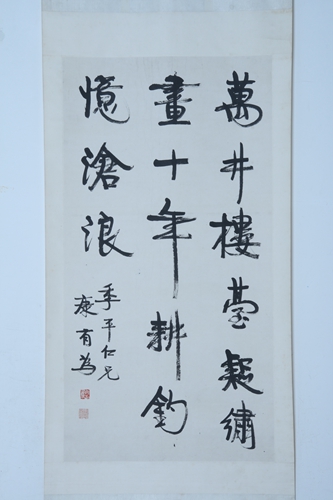 萬井樓臺疑繡
畫十年耕釣
憶滄浪
季平仁兄
康有為